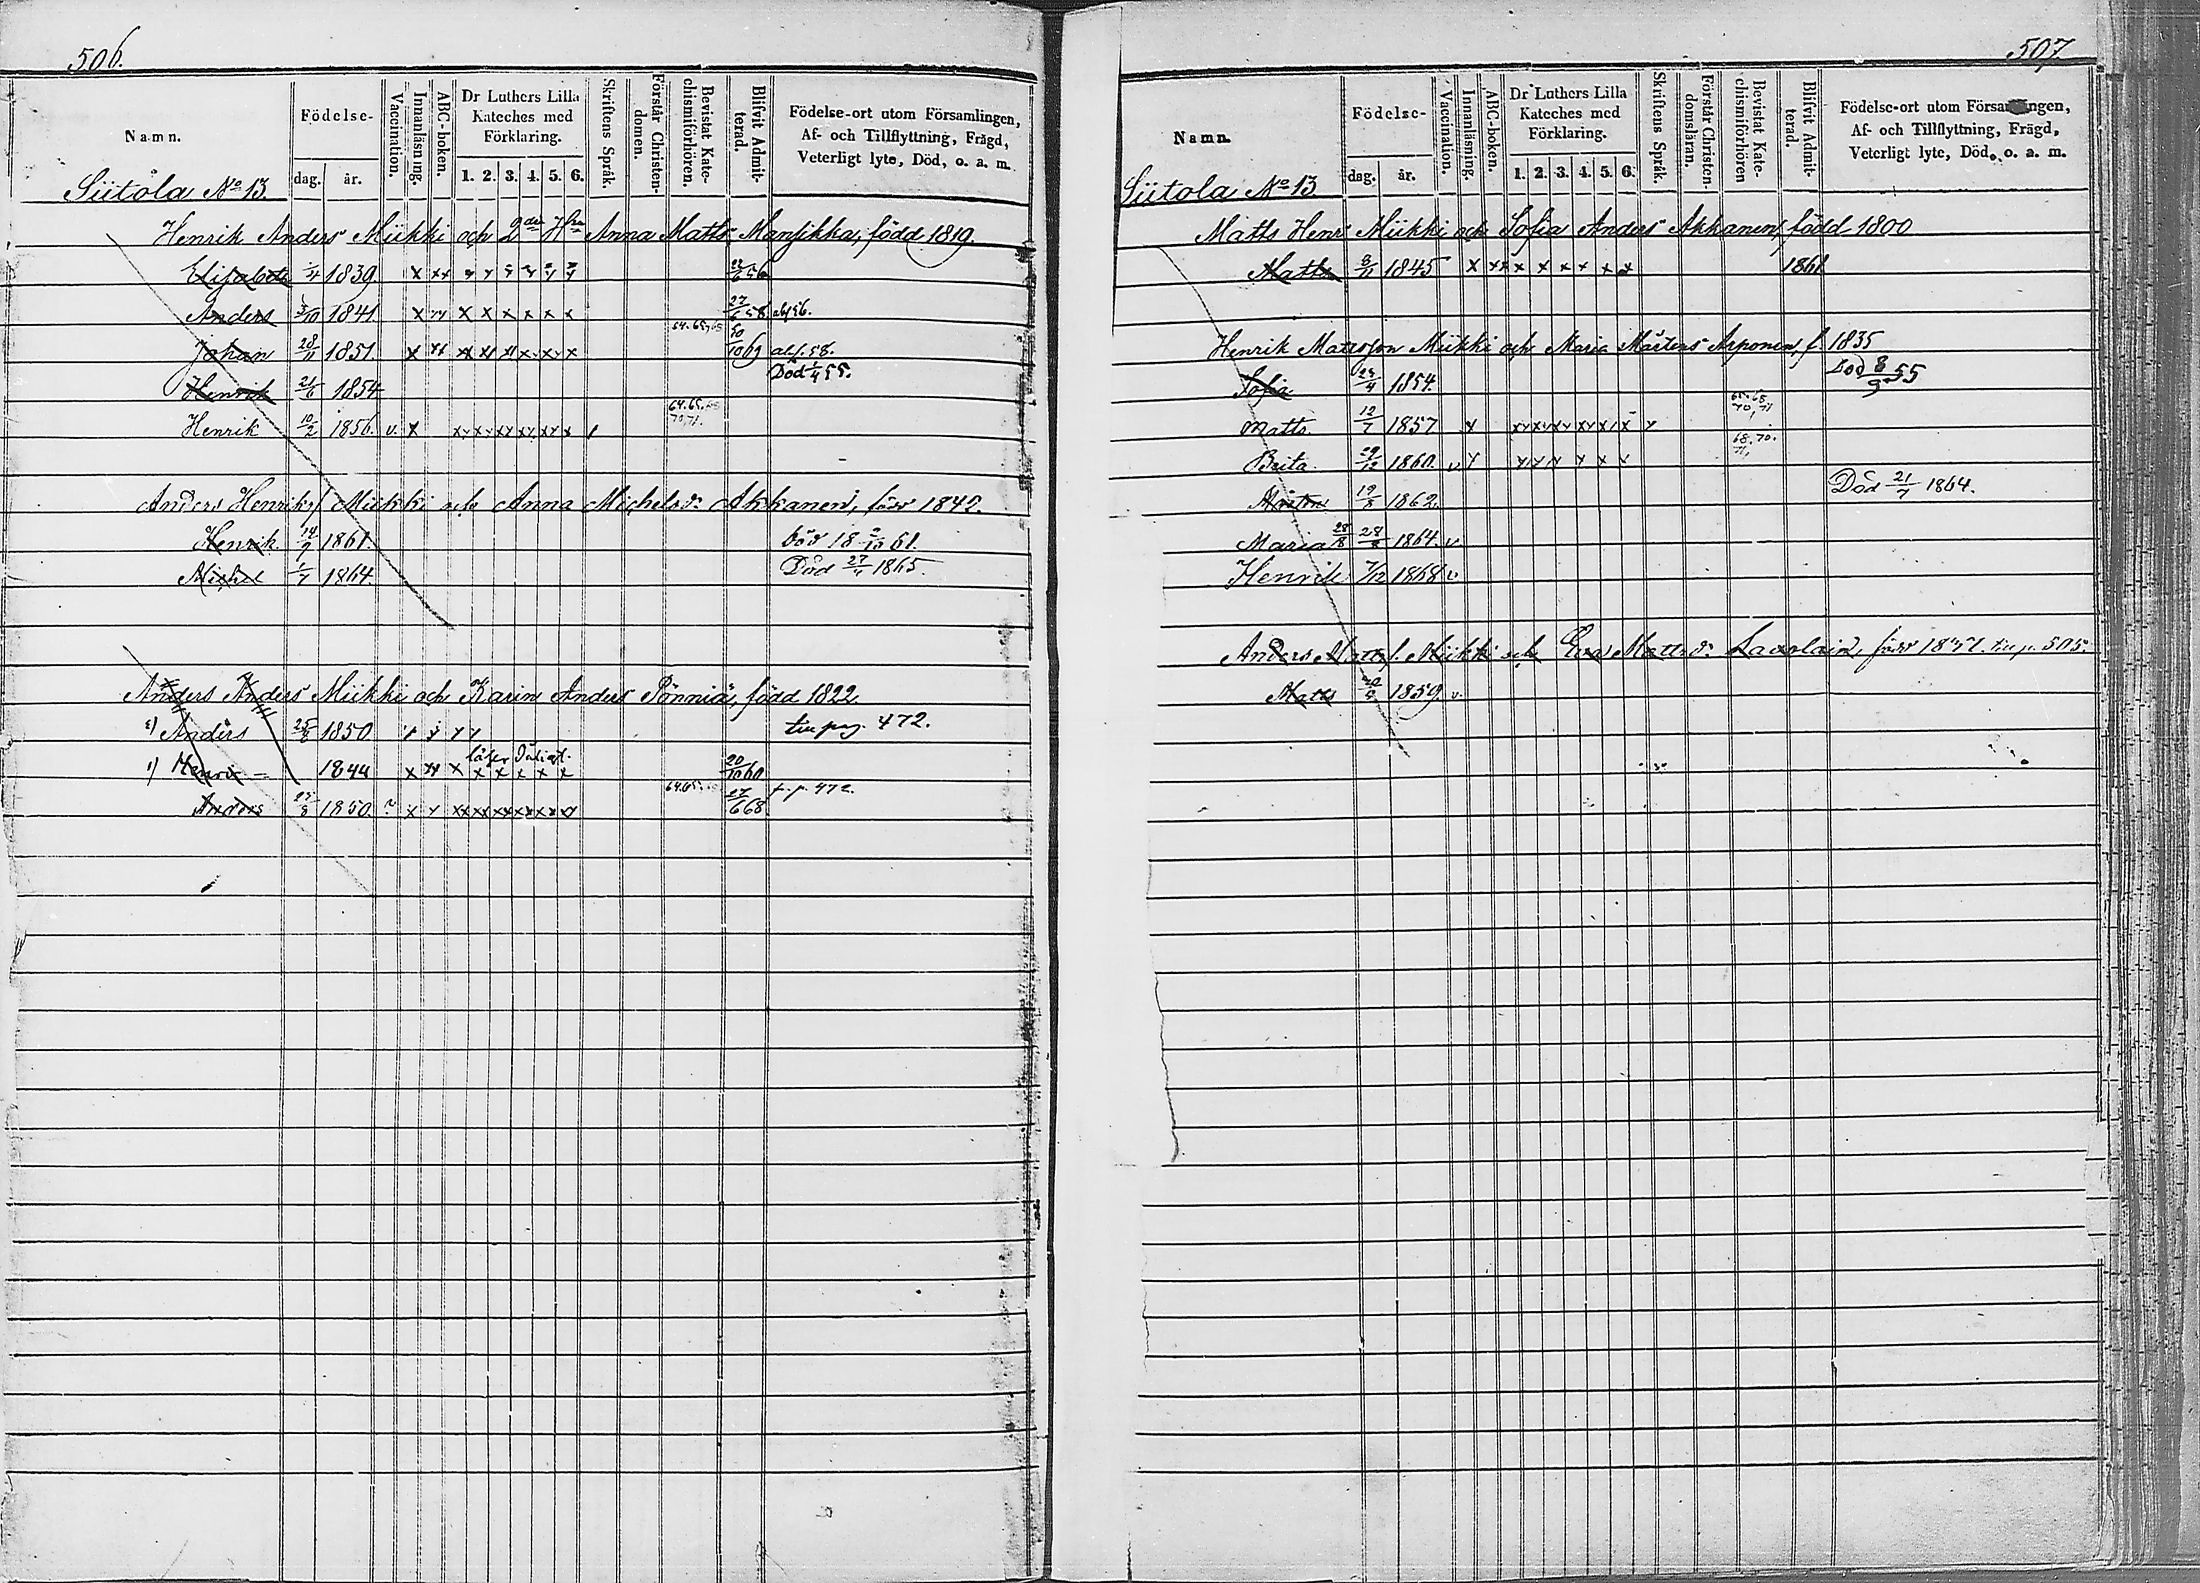 506.
Namn.
Födelse-
dag.
år.
Vaccination.
Innanläsning.
ABC-boken.
Dr Luthers Lilla
Kateches med
Förklaring.
1. 2. 3. 4. 5. 6.
Skriftens Språk.
Förstår Christen-
domen.
Bevistat Kate-
chismiförhören.
Blifvit Admit-
terad.
Födelse-ort utom Församlingen,
Af- och Tillflyttning, Frägd,
Veterligt lyte, Död, o. a. m.
Siitola No 13.
Henrik Anders Miikki och 2 Anna Matts Mansikka, född 1819.
Elisabeth 1839. x xx 56
Anders 1841. x x x x x x x 27/6 58
Johan 28/11 1851. x 64.65. 10 69 58.
Henrik 21/6 1854 Död 1/4 55.
Henrik 10/2 1856. v. x 64.65. 70,71.
Anders Miikki och Anna Michelsd: Akkanen, född 1842.
Henrik. 1861. död 61.
Michel 1864. Död 27/4 1865.
Anders Anders Miikki och Karin Anders Pönniä, född 1822
Anders 25/8 1850 472.
Henrik – 1844 x x x x x x x 20/10 60
Anders 1850. x 64.65. 27/6 68 472.
507.
Namn.
Födelse-
dag.
år.
Vaccination.
Innanläsning.
ABC-boken.
Dr Luthers Lilla
Kateches med
Förklaring.
1. 2. 3. 4. 5. 6.
Skriftens Språk.
Förstår Christen-
domsläran.
Bevistat Kate-
chismiförhören
Blifvit Admit-
terad.
Födelse-ort utom Församlingen,
Af- och Tillflyttning, Frägd,
Veterligt lyte, Död, o. a. m.
Siitola No 13
Matts Henr Miikki och Sofia Anders Akkanen, född 1800
Matts 8/11 1845 x xx x x x x x x 1861
Henrik Mattsson Miikki och Maria Mårtens Arponen, f. 1835
Sofia 1854. Död 8/9 55
Matts. 12/7 1857 x 70,71
Brita 29/12 1860. v 68.70. 71,
19/8 1862. Död 21/7 1864.
Maria 28/8 1864. v.
Henrik 7/12 1868 v
Anders Miikki och Eva Mattsd: Lavolain, född 505.
Matts 1859. v.